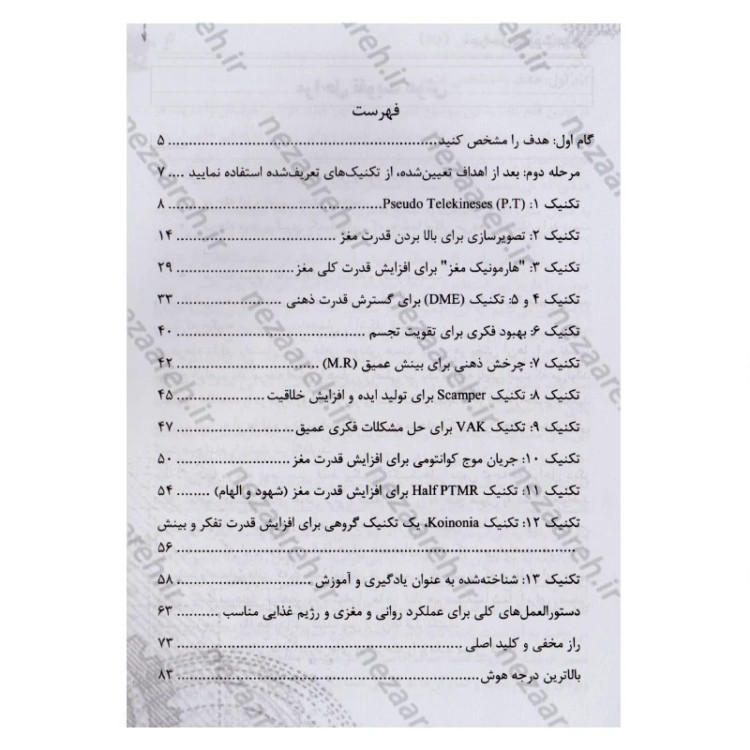 فهرست
گام اول: هدف را مشخص کنید ............ ۵
مرحله دوم: بعد از اهداف تعیین‌شده، از تکنیک‌های تعریف‌شده استفاده نمایید .... ۷
تکنیک ۱: Pseudo Telekineses (P.T) ............ ۸
تکنیک ۲: تصویرسازی برای بالا بردن قدرت مغز ............ ۱۴
تکنیک ۳: "هارمونیک مغز" برای افزایش قدرت کلی مغز ............ ۲۹
تکنیک ۴ و ۵: تکنیک (DME) برای گسترش قدرت ذهنی ............ ۳۳
تکنیک ۶: بهبود فکری برای تقویت تجسم ............ ۴۰
تکنیک ۷: چرخش ذهنی برای بینش عمیق (M.R) ............ ۴۲
تکنیک ۸: تکنیک Scamper برای تولید ایده و افزایش خلاقیت ............ ۴۵
تکنیک ۹: تکنیک VAK برای حل مشکلات فکری عمیق ............ ۴۷
تکنیک ۱۰: جریان موج کوانتومی برای افزایش قدرت مغز ............ ۵۰
تکنیک ۱۱: تکنیک Half PTMR برای افزایش قدرت مغز (شهود و الهام) ........ ۵۴
تکنیک ۱۲: تکنیک Koinonia، یک تکنیک گروهی برای افزایش قدرت تفکر و بینش
............ ۵۶
تکنیک ۱۳: شناخته‌شده به عنوان یادگیری و آموزش ............ ۵۸
دستورالعمل‌های کلی برای عملکرد روانی و مغزی و رژیم غذایی مناسب .......... ۶۳
راز مخفی و کلید اصلی ............ ۷۳
بالاترین درجه هوش ............ ۸۳
nezaareh.ir